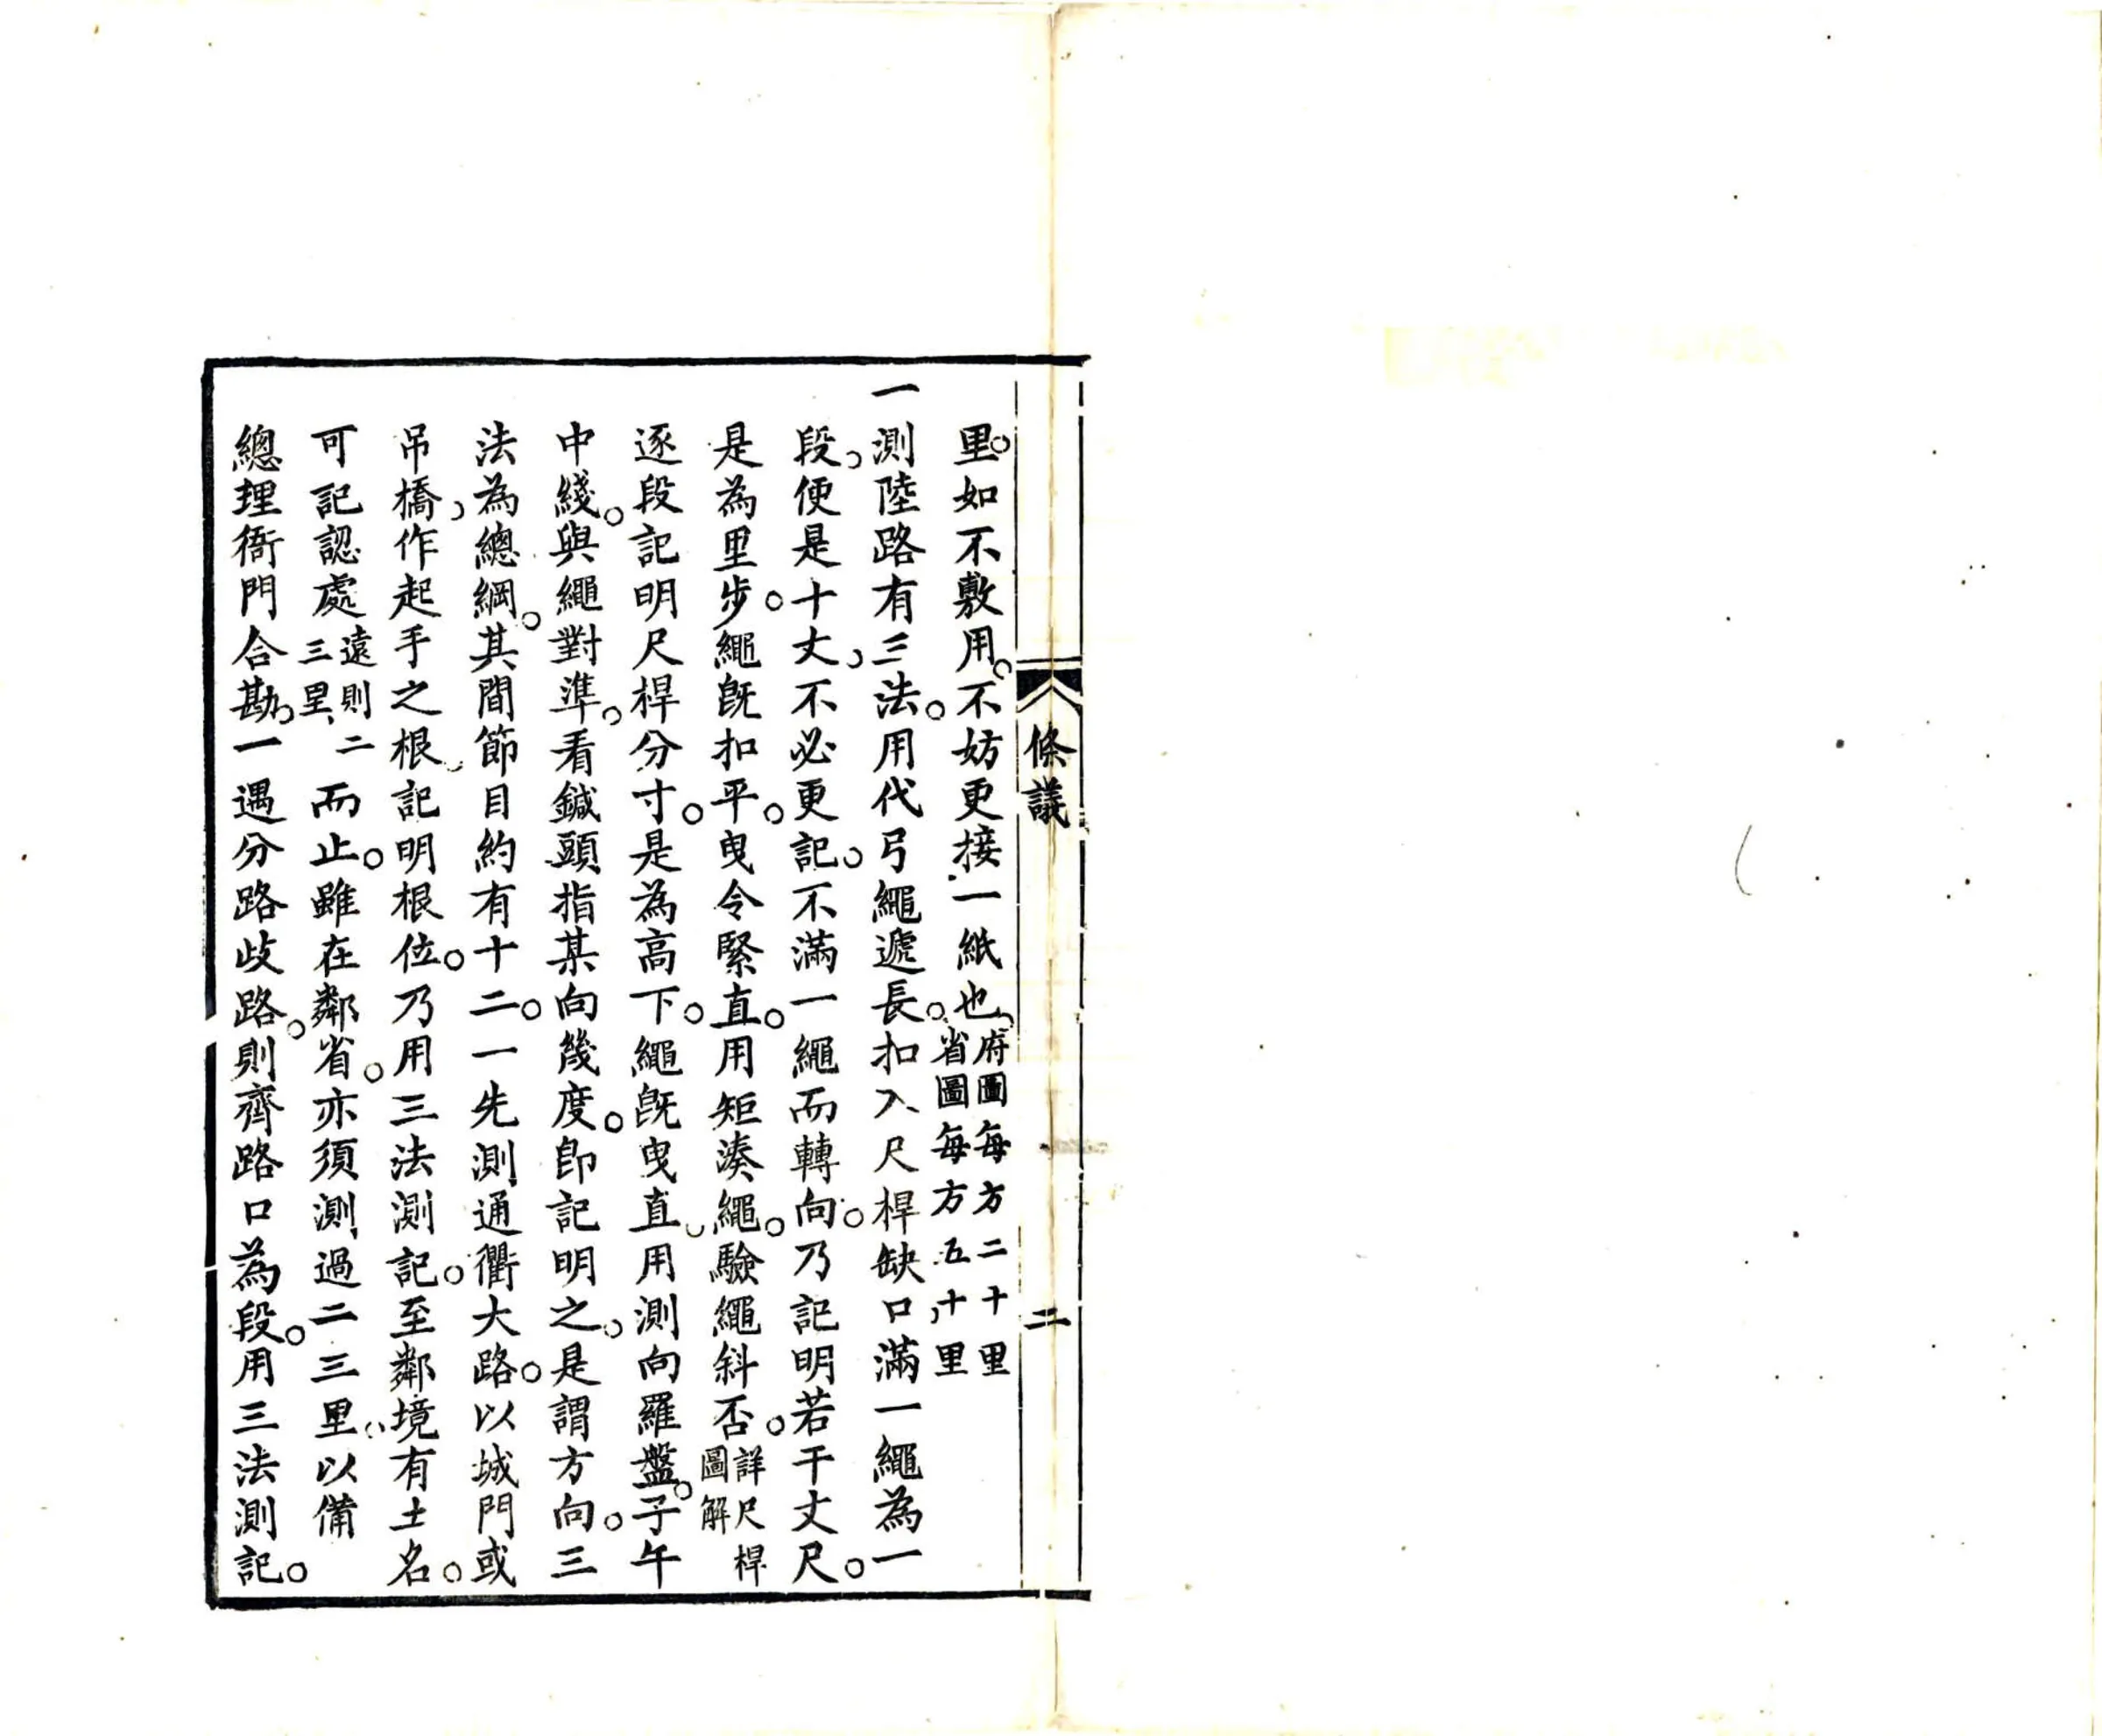 條議 二
里。如不敷用。不妨更接一紙也。府圖每方二十里省圖每方五十里
一測陸路有三法。用代弓繩遞長。扣入尺桿缺口滿一繩為一
段、便是十丈、不必更記。不滿一繩而轉向。乃記明若干丈尺。
是為里步。繩旣扣平。曳令緊直。用矩湊繩。驗繩斜否。詳尺桿圖解
逐段記明尺桿分寸。是為高下。繩旣曳直、用測向羅盤。子午
中綫。與繩對準。看鍼頭指某向幾度。卽記明之。是謂方向。三
法為總綱。其間節目約有十二。一先測通衢大路。以城門或
吊橋、作起手之根、記明根位。乃用三法測記。至鄰境有土名。
可記認處遠則二三里、而止。雖在鄰省。亦須測過二三里。以備
總理衙門合勘。一遇分路歧路。則齊路口為段。用三法測記。